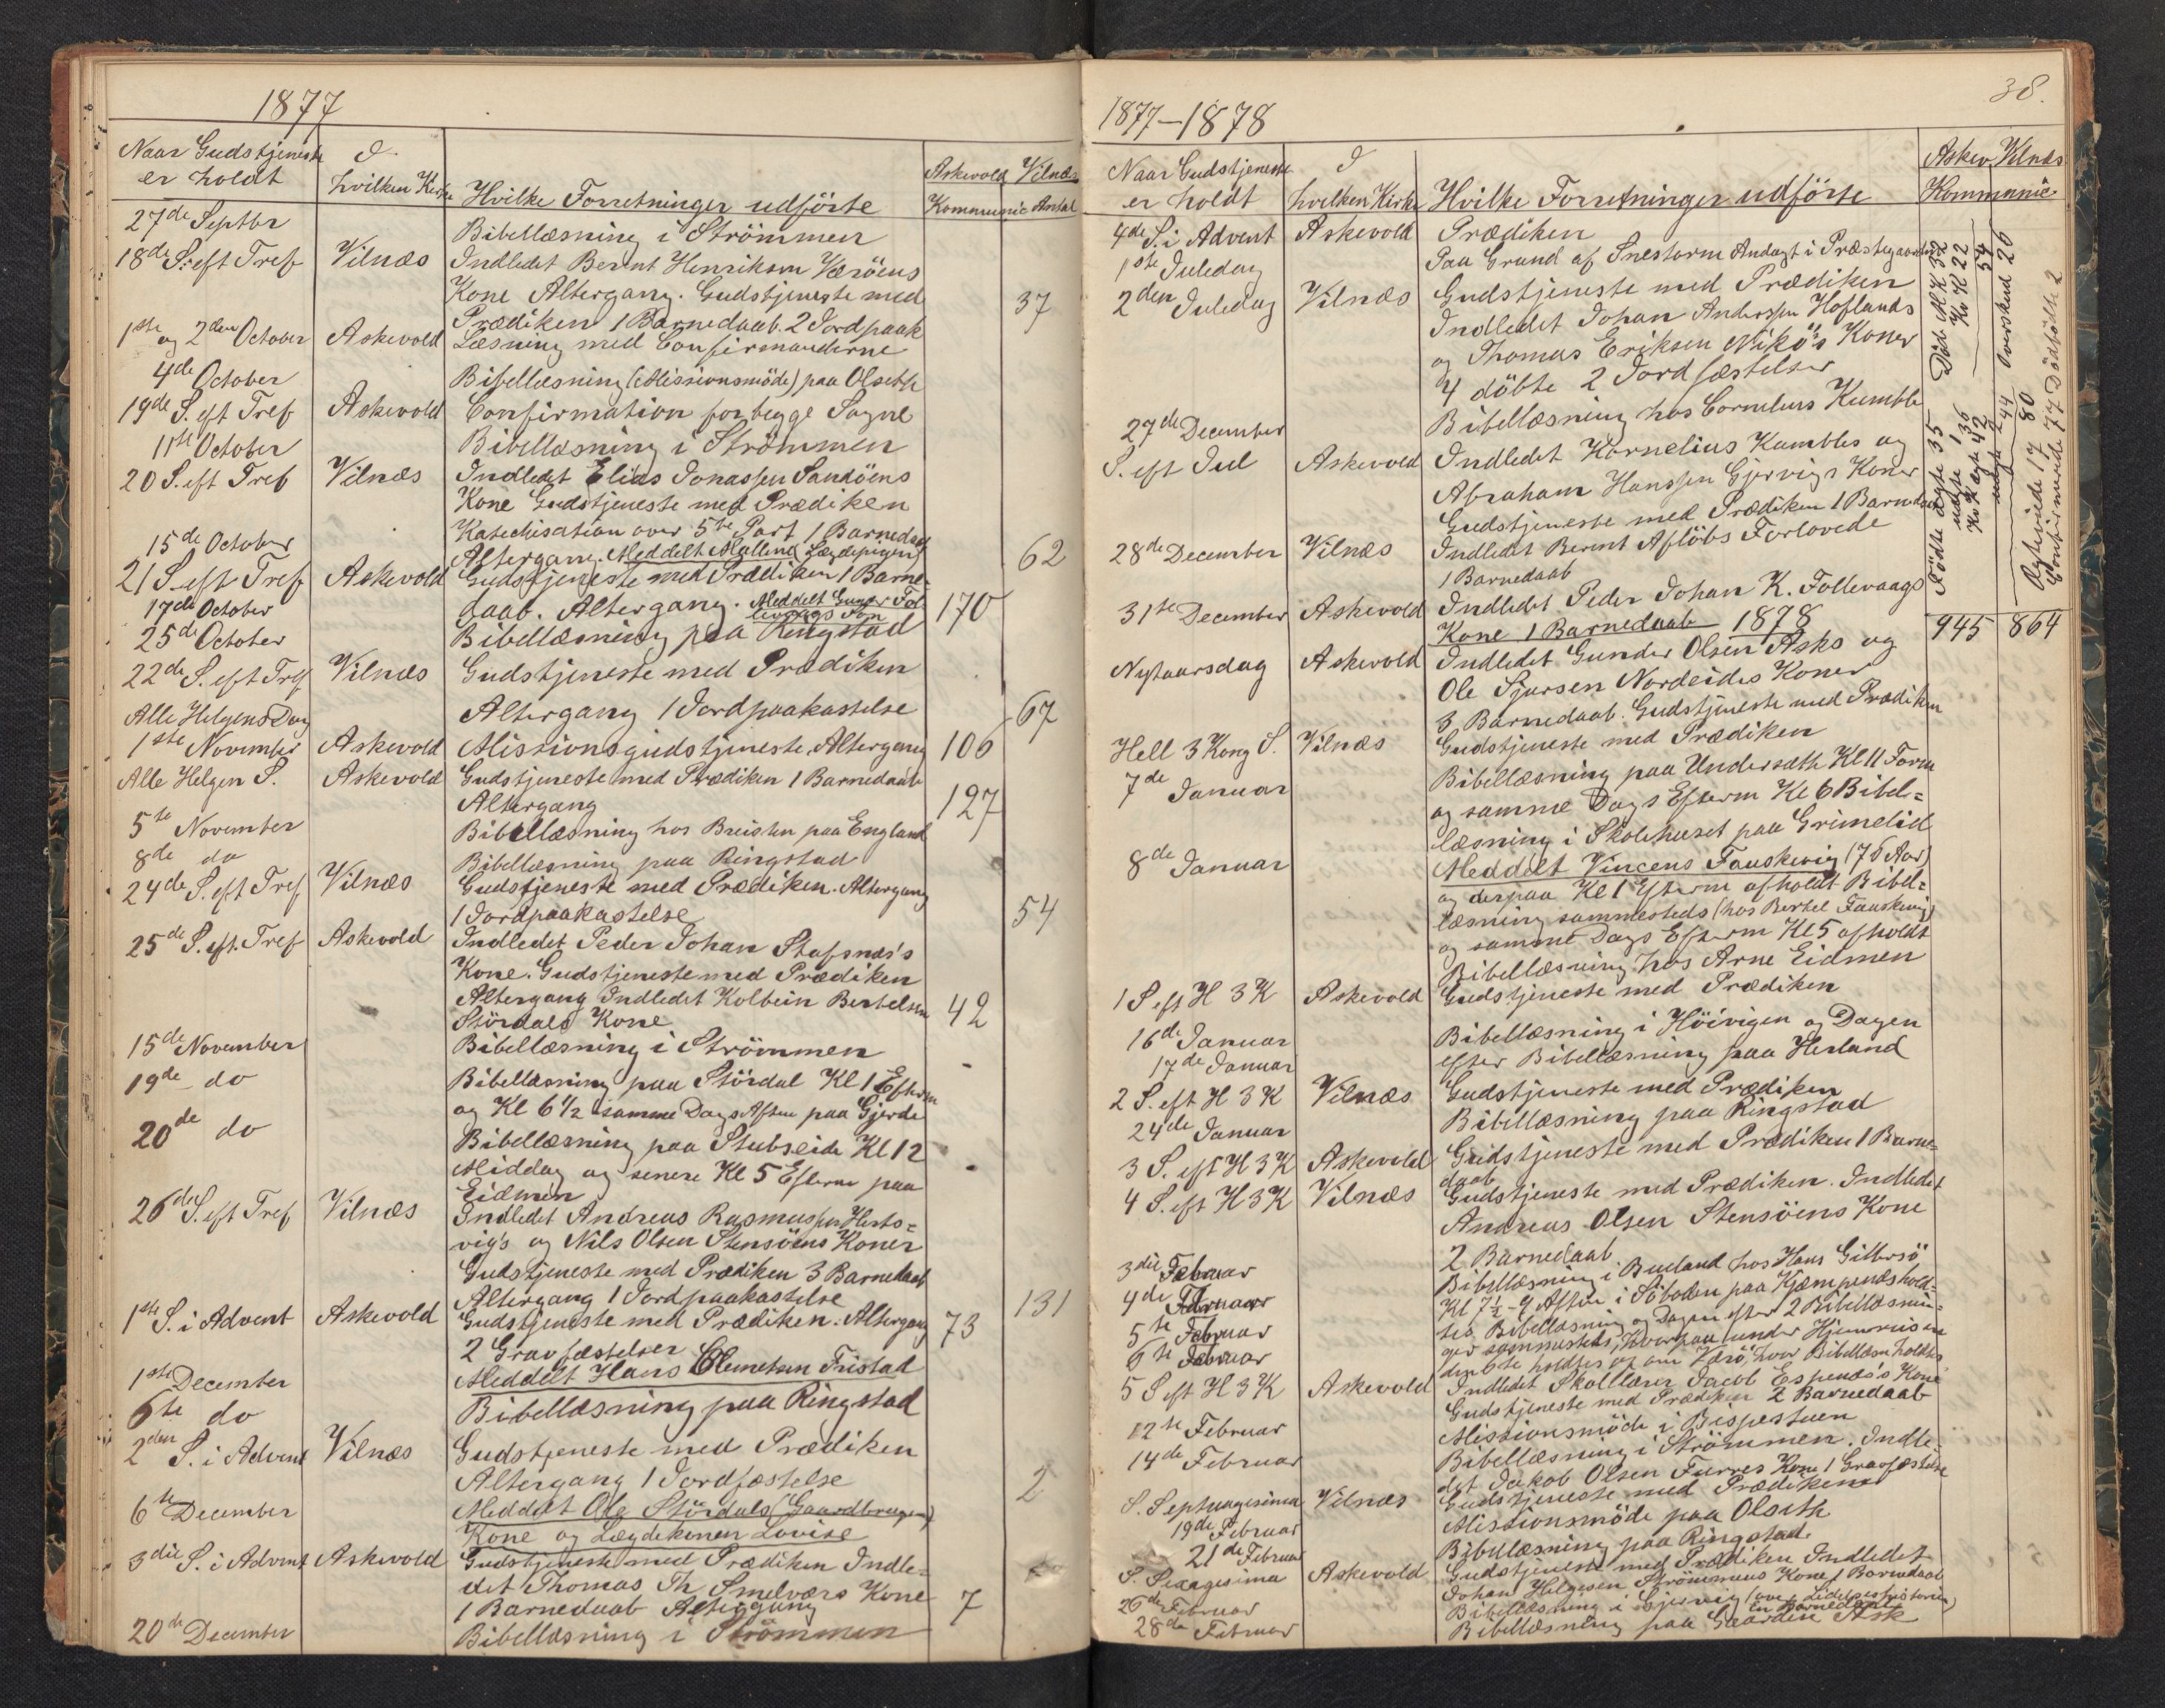 1877
Naar Gudstjeneste er holdt
I hvilken Kirke
Hvilke Forretninger udförte
Askevold Vilnæs
Kommunic Antal
27de Septbr Bibellæsning i Strömmen
18de S. eft Tref Vilnæs Indledet Berent Henriksen Væröens
Kone Altergang. Gudstjeneste med 37
Prædiken 1 Barnedaab. 2 Jordpaak
1ste og 2den October Askevold Læsning med Confirmanderne
4de October Bibellæsning (Missionsmöde) paa Olseth
19de S. eft Tref Askevold Confirmation for begge Sogne
11te October Bibellæsning i Strömmen
20 S. eft Tref Vilnæs Indledet Elias Jonassen Sandöens
Kone Gudstjeneste med Prædiken
Katechisation over 5te Part 1 Barnedaab
15de October Altergang. Meddelt Mallene Lægdepigen 62
21 S. eft Tref Askevold Gudstjeneste med Prædiken 1 Barne-
17de October daab. Altergang. Meddelt 170
25de October Bibellæsning paa Ringstad
22de S. eft Tref Vilnæs Gudstjeneste med Prædiken
Altergang 1 Jordpaakastelse 67
Alle Helgens Dag
1ste November Askevold Missionsgudstjeneste. Altergang 106
Alle Helgen S. Askevold Gudstjeneste med Prædiken 1 Barnedaab
Altergang 127
5te November Bibellæsning hos Breisten paa England
8de do Bibellæsning paa Ringstad
24de S. eft Tref Vilnæs Gudstjeneste med Prædiken. Altergang
1 Jordpaakastelse 54
25de S. eft. Tref Askevold Indledet Peder Johan Stafsnæs's
Kone. Gudstjeneste med Prædiken
Altergang Indledet Kolbein Bertelsen 42
Stördals Kone
15de November Bibellæsning i Strömmen -
19de do Bibellæsning paa Stördal Kl 1 Efterm
og Kl 6½ samme Dags Aften paa Gjerde
20de do Bibellæsning paa Stubseide Kl 12
Middag og senere Kl 5 Efterm paa
Eidmen
26de S. eft Tref Vilnæs Indledet Andreas Rasmussen Herts=
vig's og Nils Olsen Stensöens Koner
Gudstjeneste med Prædiken 3 Barnedaab
Altergang 1 Jordpaakastelse 131
1ste S. i Advent Askevold Gudstjeneste med Prædiken. Altergang 73
2 Gravfæstelser
1ste December Meddelt Hans Clemetsen Fristad
6te do Bibellæsning paa Ringstad
2den S. i Advent Vilnæs Gudstjeneste med Prædiken
Altergang 1 Jordfæstelse 2
6te December Meddelt Ole Stördals (Gaardbrugers)
Kone og Lægdekonen Lovise
3die S. i Advent Askevold Gudstjeneste med Prædiken Indle=
det Thomas Th. Smelværs Kone
1 Barnedaab Altergang 7
20de December Bibellæsning i Strömmen
38.
1877-1878
Naar Gudstjeneste er holdt
I hvilken Kirke
Hvilke Forretninger udförte
Askev. Vilnæs
Kommunic
4de S. i Advent Askevold Prædiken
1ste Juledag Paa Grund af Snestorm Andagt i Præstegaarden
2den Juledag Vilnæs Gudstjeneste med Prædiken
Indledet Johan Anderssen Hoflands
og Thomas Eriksen Nikö's Koner
4 döbte 2 Jordfæstelser
27de December Bibellæsning hos Cornelius Kumble
S. eft Jul Askevold Indledet Kornelius Kumbles og
Abraham Hanssen Gjervigs Koner
Gudstjeneste med Prædiken 1 Barnedaab
28de December Vilnæs Indledet Berent Aflöbs Forlovede
1 Barnedaab
31te December Askevold Indledet Peder Johan K. Follevaags
Kone 1 Barnedaab 1878 945 864
Nytaarsdag Askevold Indledet Gunder Olsen Asks og
Ole Sjursen Nordeides Koner
3 Barnedaab. Gudstjeneste med Prædiken
Hell 3 Kong S. Vilnæs Gudstjeneste med Prædiken
7de Januar Bibellæsning paa Undersæth Kl 11 Form
og samme Dags Efterm Kl 6 Bibel=
læsning i Skolehuset paa Grimelid
8de Januar Meddelt Vincens Fauskevig (76 Aar)
og derpaa Kl 1 Efterm afholdt Bibel=
læsning sammesteds (hos Bertel Fauskevig)
og samme Dags Efterm Kl 5 afholdt
Bibellæsning hos Arne Eidmen
1 S eft H 3 K Askevold Gudstjeneste med Prædiken
16de Januar Bibellæsning i Höivigen og Dagen
17de Januar efter Bibellæsning paa Herland
2 S. eft H 3 K Vilnæs Gudstjeneste med Prædiken
24de Januar Bibellæsning paa Ringstad
3 S. eft H 3 K Askevold Gudstjeneste med Prædiken 1 Barne-
daab
4 S. eft H 3 K Vilnæs Gudstjeneste med Prædiken. Indledet
Andreas Olsen Stensöens Kone
2 Barnedaab
3die Februar Bibellæsning i Bueland hos Hans Gittersö
4de Februar Kl 7½-9 Aften i Söboden paa Kjempenes hold-
5te Februar tes Bibellæsning og Dagen efter 2 Bibellæsnin-
ger sammesteds, hvorpaa under Hjemreisen
6te Februar den 6te holdtes op om Værö, hvor Bibellæsn holdtes
5 S eft H 3 K Askevold Indledet Skollærer Jacob Espenes's Kone
Gudstjeneste med Prædiken 2 Barnedaab
12te Februar Missionsmöde i Bispestuen
14de Februar Bibellæsning i Strömmen. Indle-
det Jakob Olsen Furres Kone 1 Gravfæstelse
S. Septuagesima Vilnæs Gudstjeneste med Prædiken
19de Februar Missionsmöde paa Olseth
21de Februar Bibellæsning paa Ringstad.
S. Sexagesima Askevold Gudstjeneste med Prædiken Indledet
Johan Helgesen Strömmens Kone 1 Barnedaab
26de Februar Bibellæsning i Gjervig (over Lidelseshistorien)
En Barnedaab
28de Februar Bibellæsning paa Gaarden Ask
Födte ægte 35
uægte 1 36
Kv K ægte 42
uægte 2 44
80
Död MK 32
Kv K 22
54
Overskud 26
Ægteviede 17
Confirmerede 77 Dödfödte 2